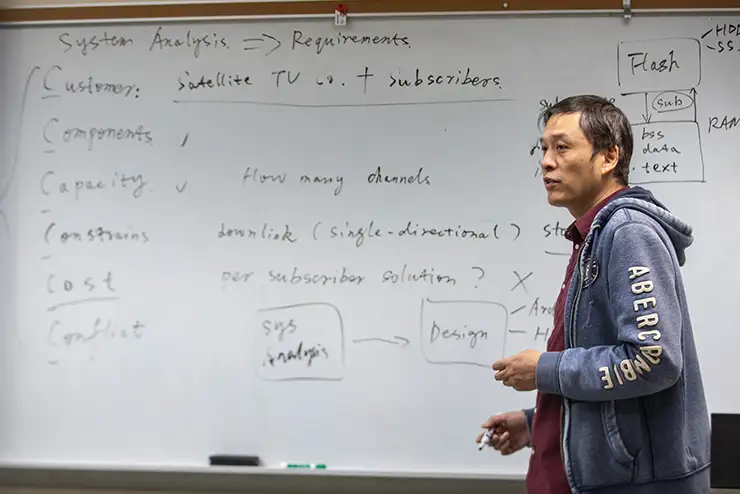 System Analysis => Requirements.
Customer: Satellite TV Co. + subscribers.
Components
Capacity. how many channels
Constrains downlink (single-directional)
Cost per subscriber solution? X
Conflict
sys
Analysis
Design
Flash
HDD
sub
RAM
bss
data
.text
ABERCROMBIE